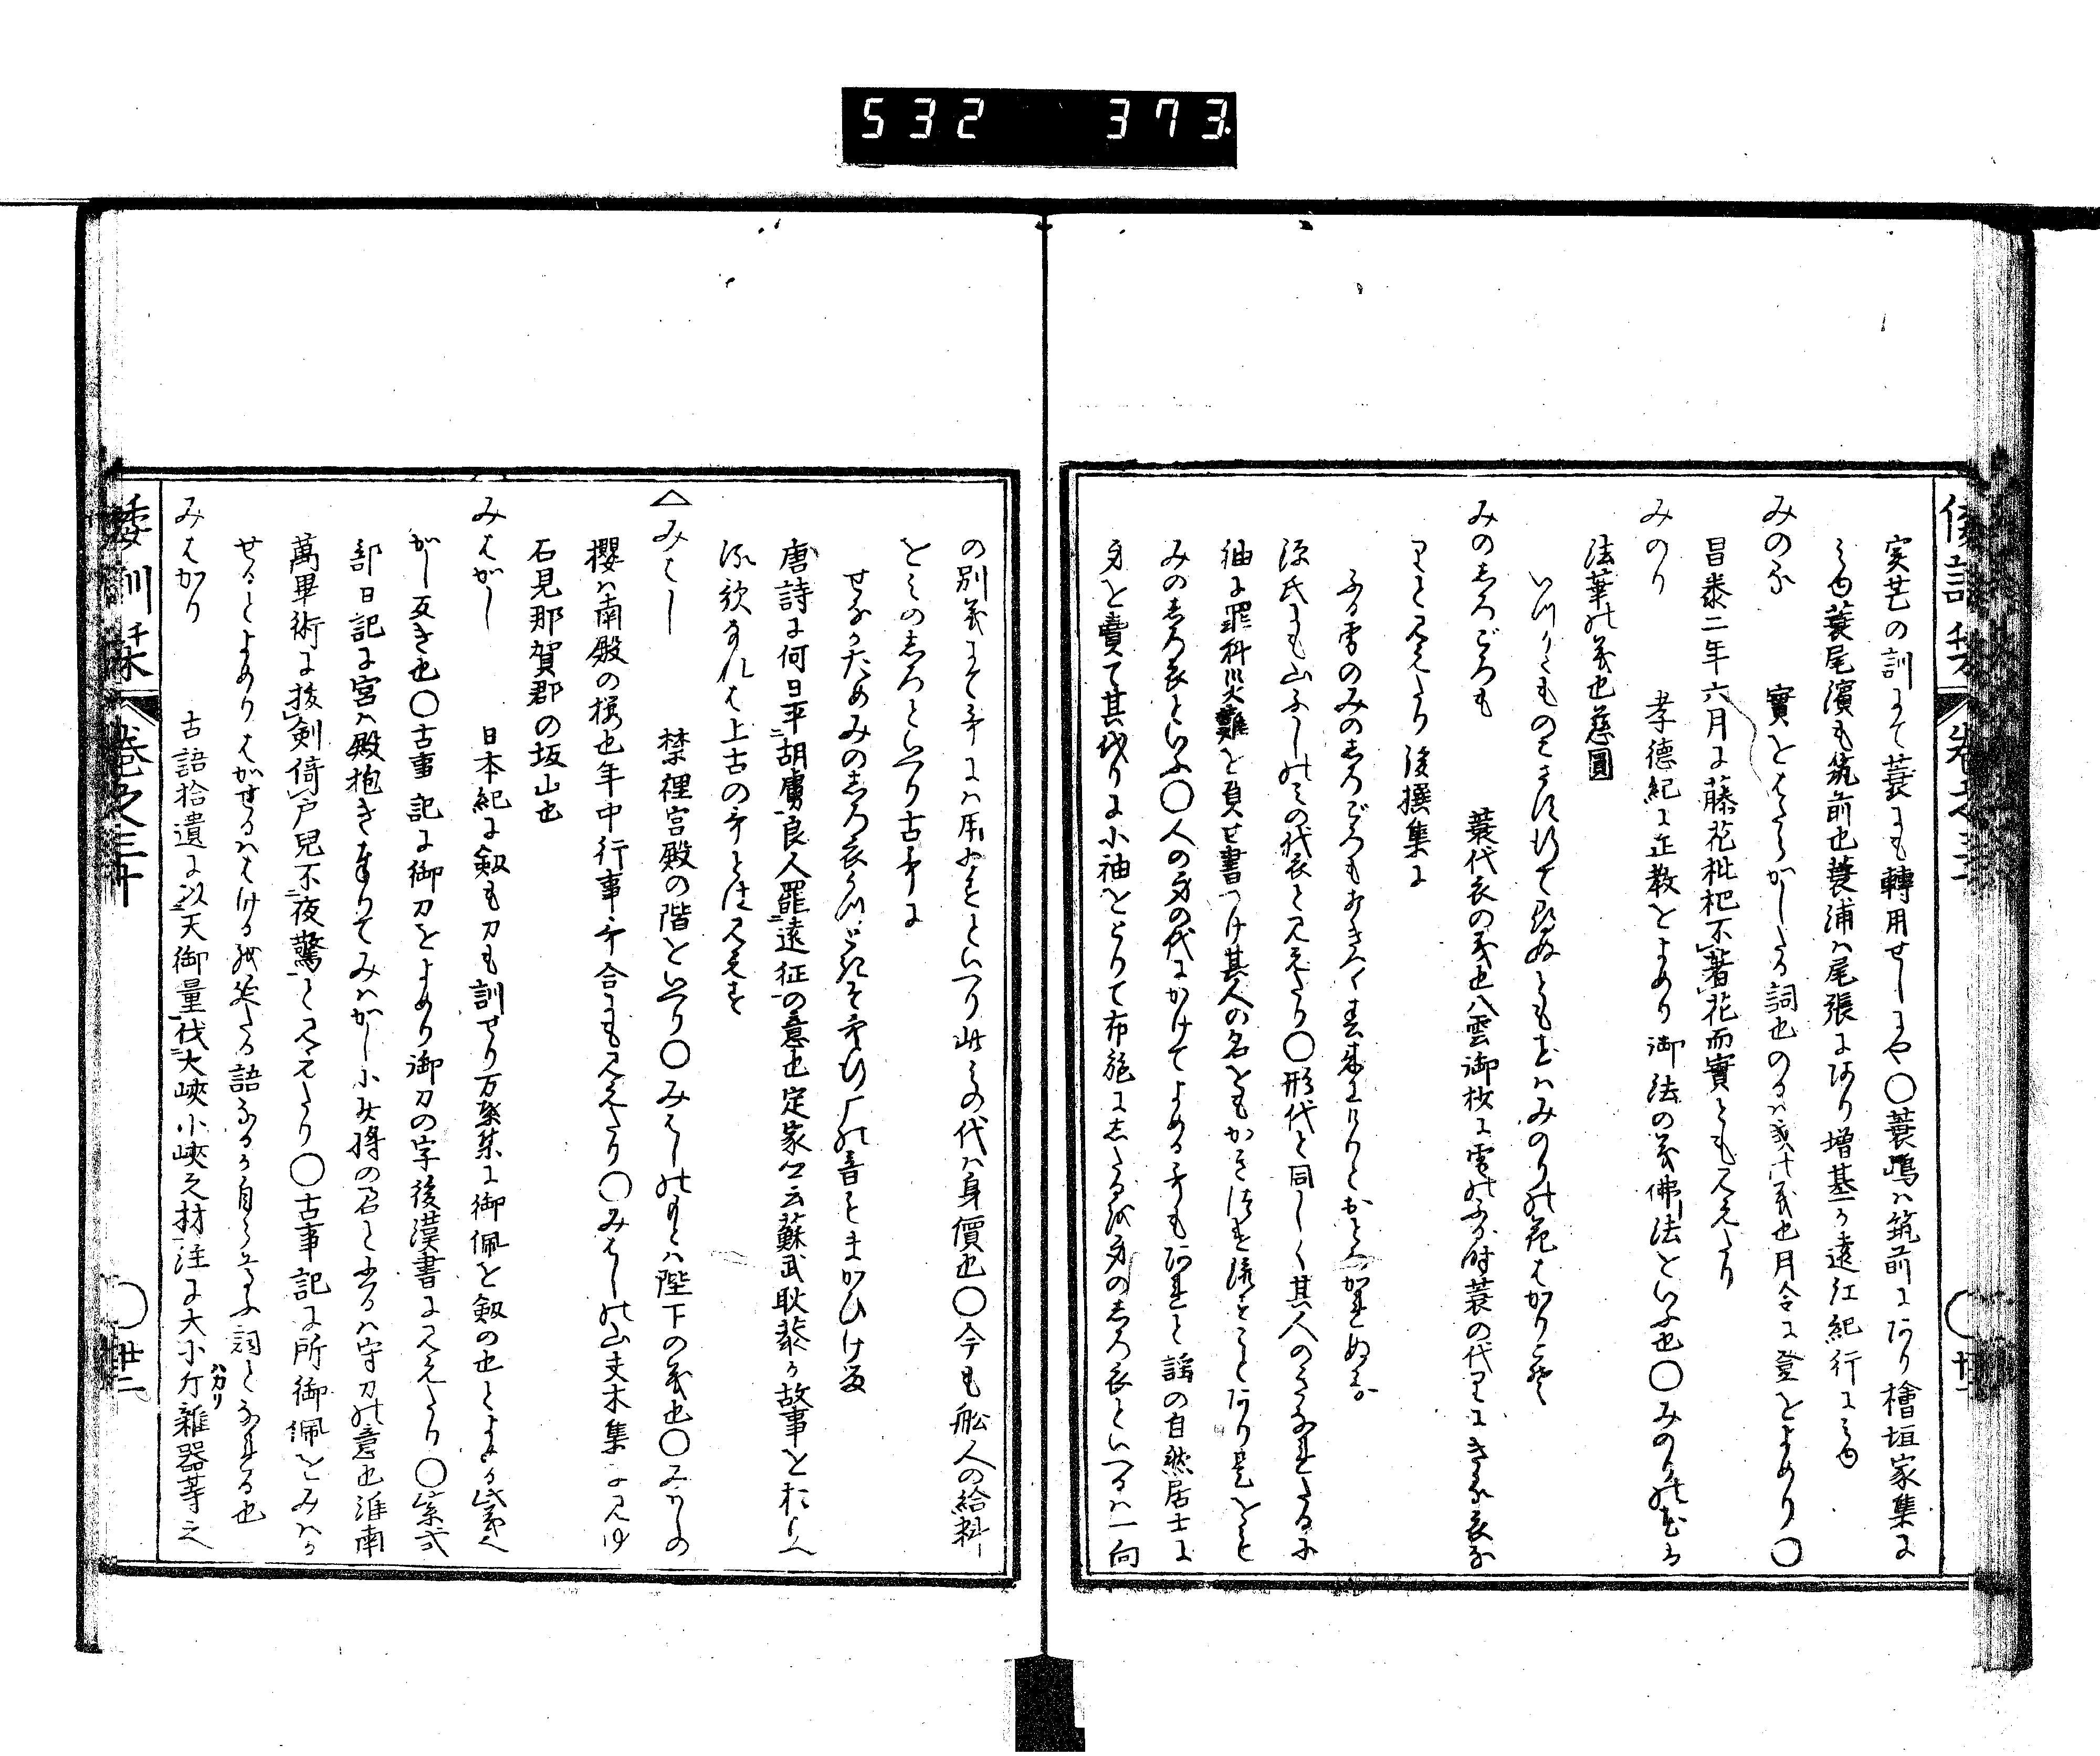 532 373
倭訓栞 卷之三十
実芒の訓にて蓑にも轉用せしにや〇蓑嶋ハ筑前にあり檜垣家集に
みゆ蓑尾濱も筑前也蓑浦ハ尾張にあり増基か遠江紀行にみゆ
みのる 實をはたらかしたる詞也のるハ の義也月令に登をよめり〇
昌泰二年六月に藤花枇杷不著花而實とも見えたり
みのり 孝德紀に正教をよめり御法の義佛法をいふ也〇みのりの
法華の義也慈圓
いつりともの ともをハみのりの花はかり
みのしろごろも 蓑代衣の義也八雲御抄に雪のふる時蓑の代りにきる衣な
りと見えたり後撰集に
ふる雪のみのしろごろもうちきつゝ春来にけりとおとろかれぬる
源氏にも山ふしのみの代衣と見えたり〇形代と同しく其人の に
袖に罪科災難を負せ書つけ其人の名をもかき 流すことあり是をも
みのしろ衣といふ〇人の身の代にかけてよめる哥もあれと謡の自然居士に
身を賣て其代りに小袖をとりて布施にしたるを身のしろ衣といへるハ一向
の別義にて哥にハ用ゐすといへり此みの代ハ身價也〇今も舩人の給料
をみのしろといへり古哥に
せなかためみのしろ衣うつときそ空行鴈の音もまかひける
唐詩に何日平胡虜良人罷遠征の意也定家公云蘇武耿恭か故事を
流歌なれは上古の哥とは見えす
△みはし 禁裡宮殿の階をいへり〇みはしのもとハ陛下の義也〇みはしの
櫻ハ南殿の櫻也年中行事哥合にも見えたり〇みはしの山夫木集に見ゆ
石見那賀郡の坂山也
みはかし 日本紀に劔も刀も訓せり万葉集に御佩を劔の也とよめる義へ
かし反き也〇古事記に御刀をよめり御刀の字後漢書に見えたり〇紫式
部日記に宮ハ殿抱き奉りてみハかし小少将の君とあるハ守刀の意也淮南
萬畢術に抜剣倚戸兒不夜驚と見えたり〇古事記に所御佩をみハか
せるとよめりはかせるハはける 延たる語なるか自らいふ詞となれる也
みはかり 古語拾遺に以天御量伐大峽小峽之材注に大小斤雜器等之
ハカリ
倭訓栞 卷之三十 〇 卅二